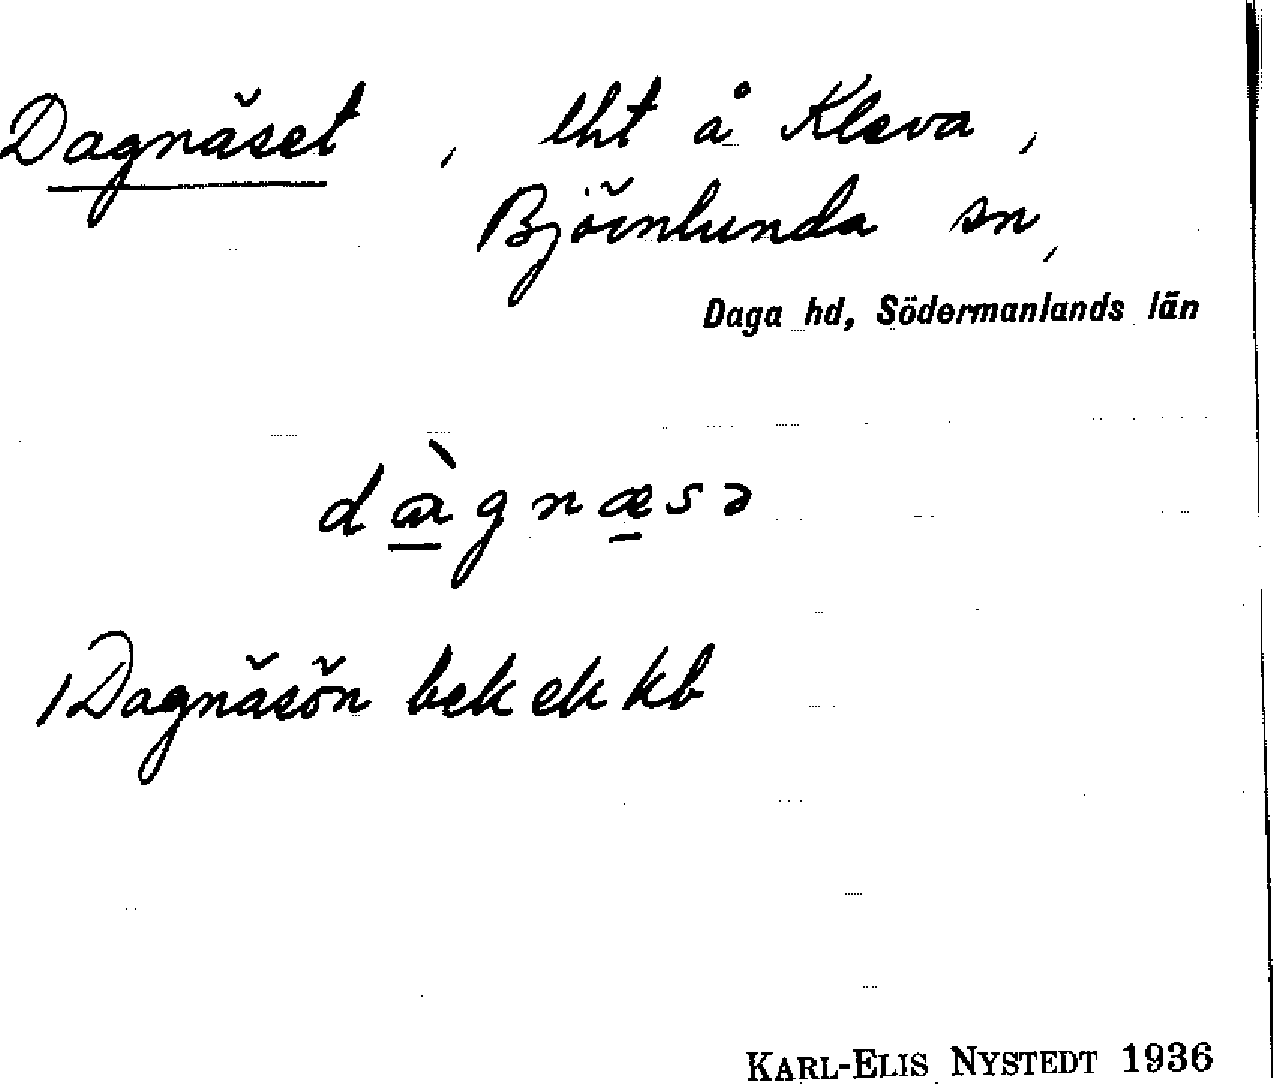 Dagnäset, lht å Kleva,
Björnlunda sn,
Daga hd, Södermanlands län
dàgnæsə
Dagnäsön bek ek kb
KARL-ELIS NYSTEDT 1936